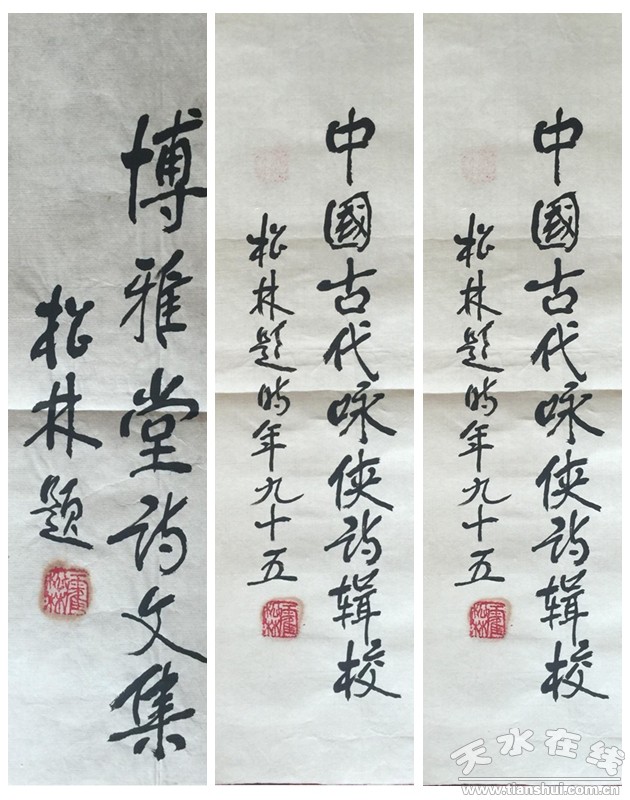 博雅堂诗文集
松林题
中國古代咏侠诗辑校
松林题时年九十五
中國古代咏侠诗辑校
松林题时年九十五
天水在线
www.tianshui.com.cn